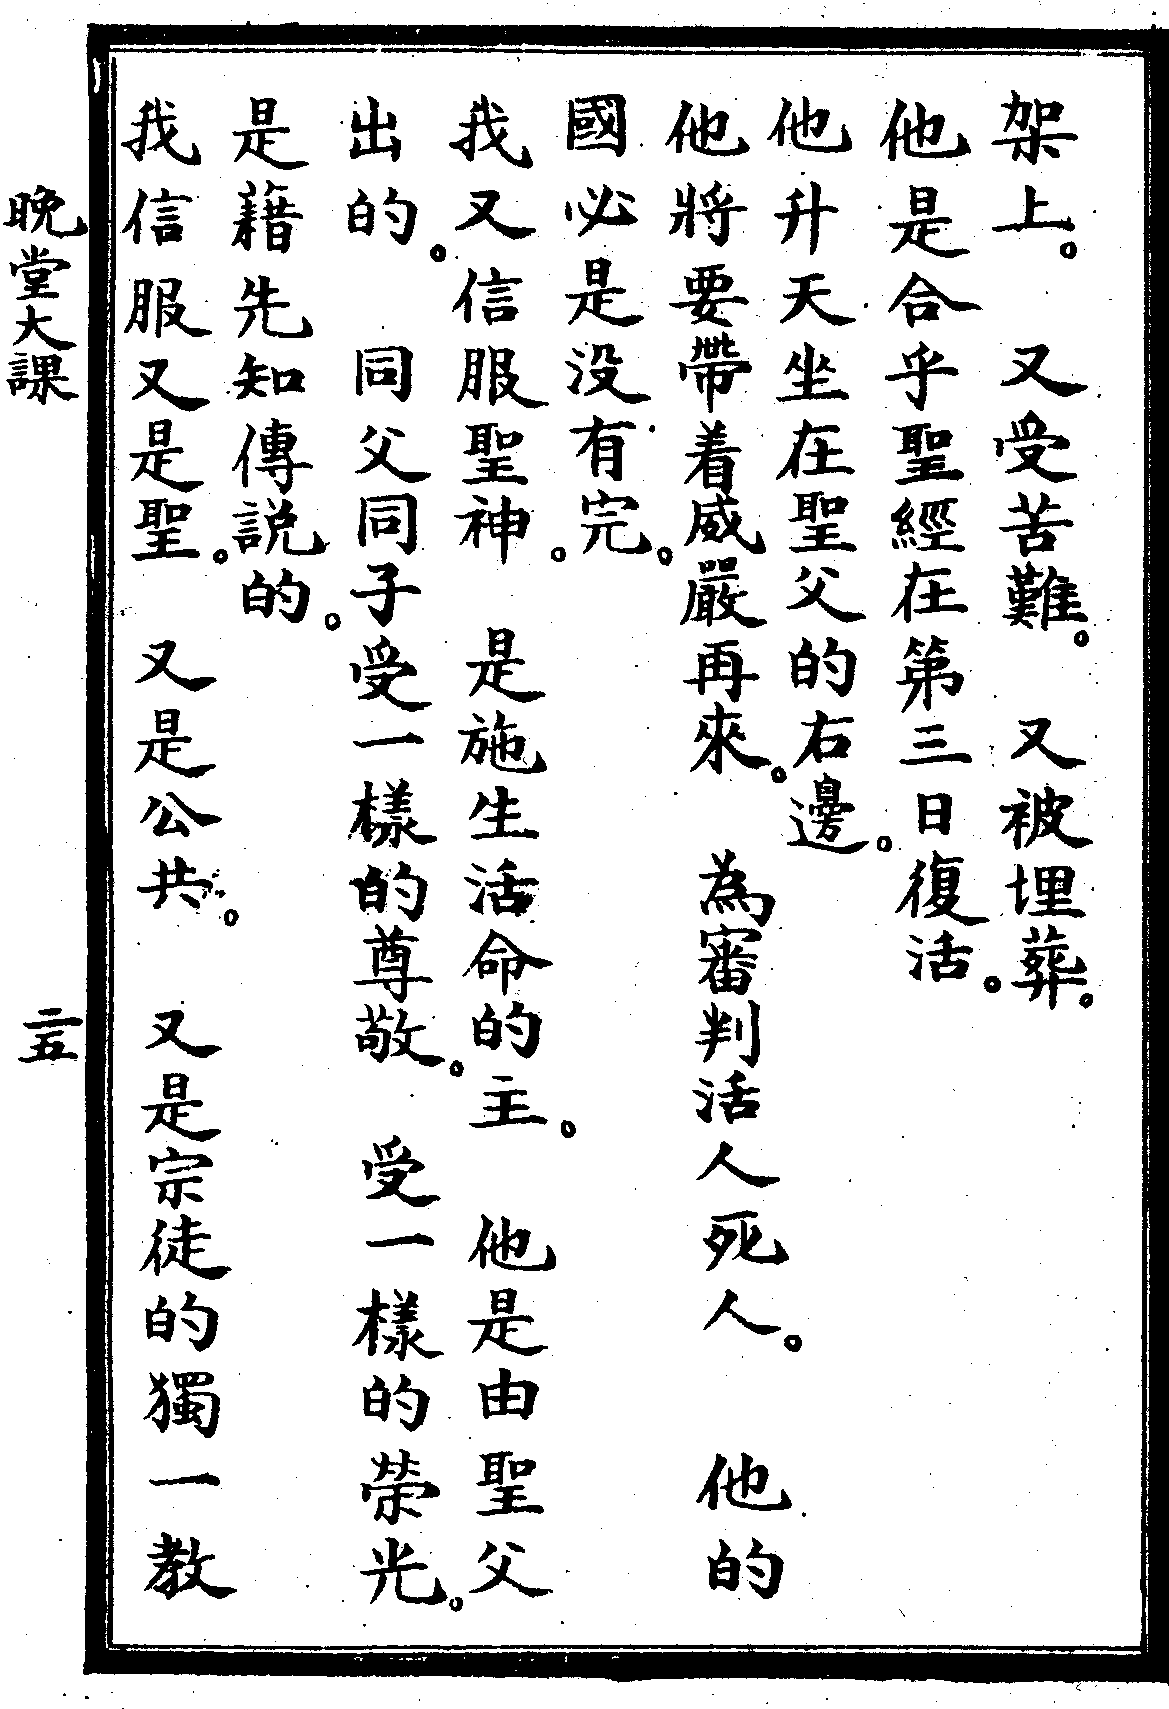 架上。 又受苦難。 又被埋葬。
他是合乎聖經在第三日復活。
他升天坐在聖父的右邊。
他將要帶着威嚴再來。 為審判活人死人。 他的
國必是没有完。
我又信服聖神。 是施生活命的主。 他是由聖父
出的。 同父同子受一樣的尊敬。 受一樣的榮光。
是藉先知傳説的。
我信服又是聖。 又是公共。 又是宗徒的獨一教
晚堂大課
二五